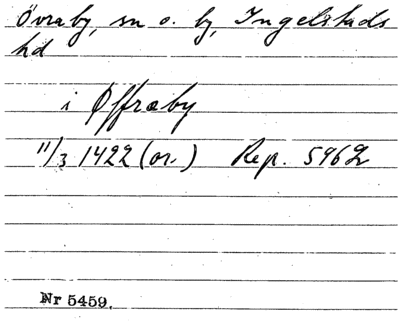 Övraby, sn o. by, Ingelstads
hd
i Øffræby
11/3 1422 (or.) Rep. 5962
Nr 5459.